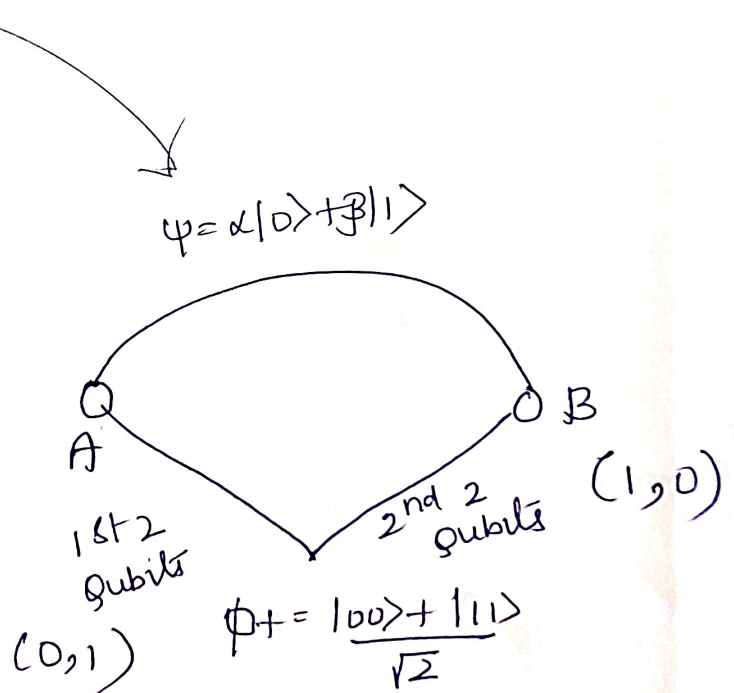 ψ= α|0>+β|1>
A
B
1st 2
Qubits
(0,1)
2nd 2
Qubits
(1,0)
ϕ+ = |00>+|11>
√2